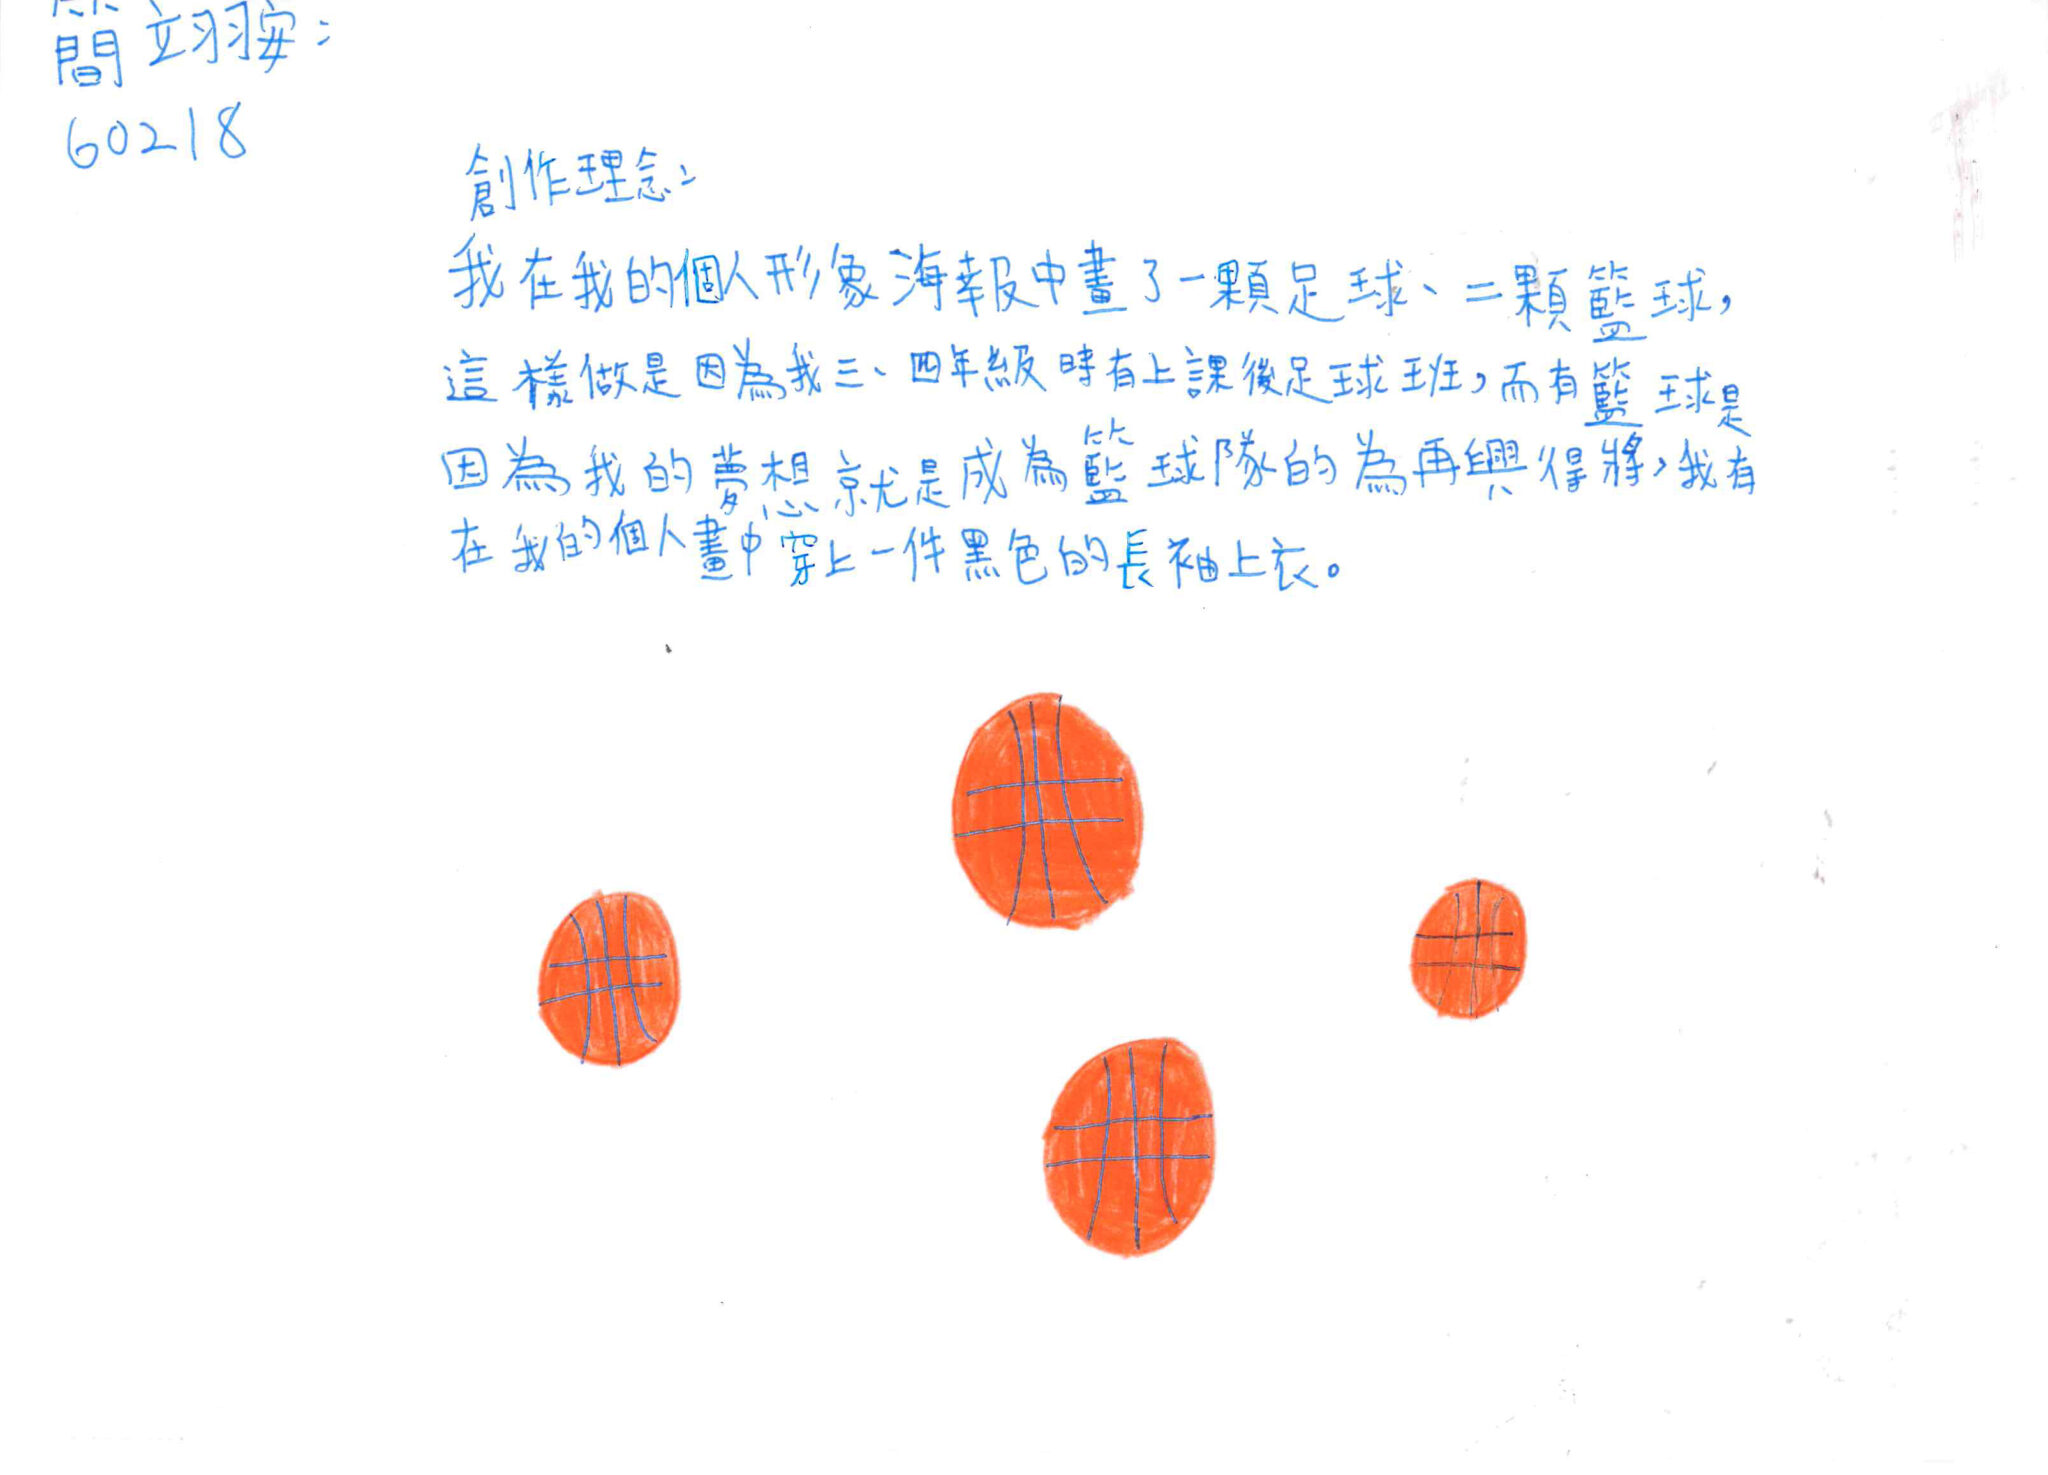 簡立翔安:
60218
創作理念:
我在我的個人形象海報中畫了一顆足球、二顆籃球,
這樣做是因為我三、四年級時有上課後足球班,而有籃球是
因為我的夢想就是成為籃球隊的為再興得將,我有
在我的個人畫中穿上一件黑色的長袖上衣。